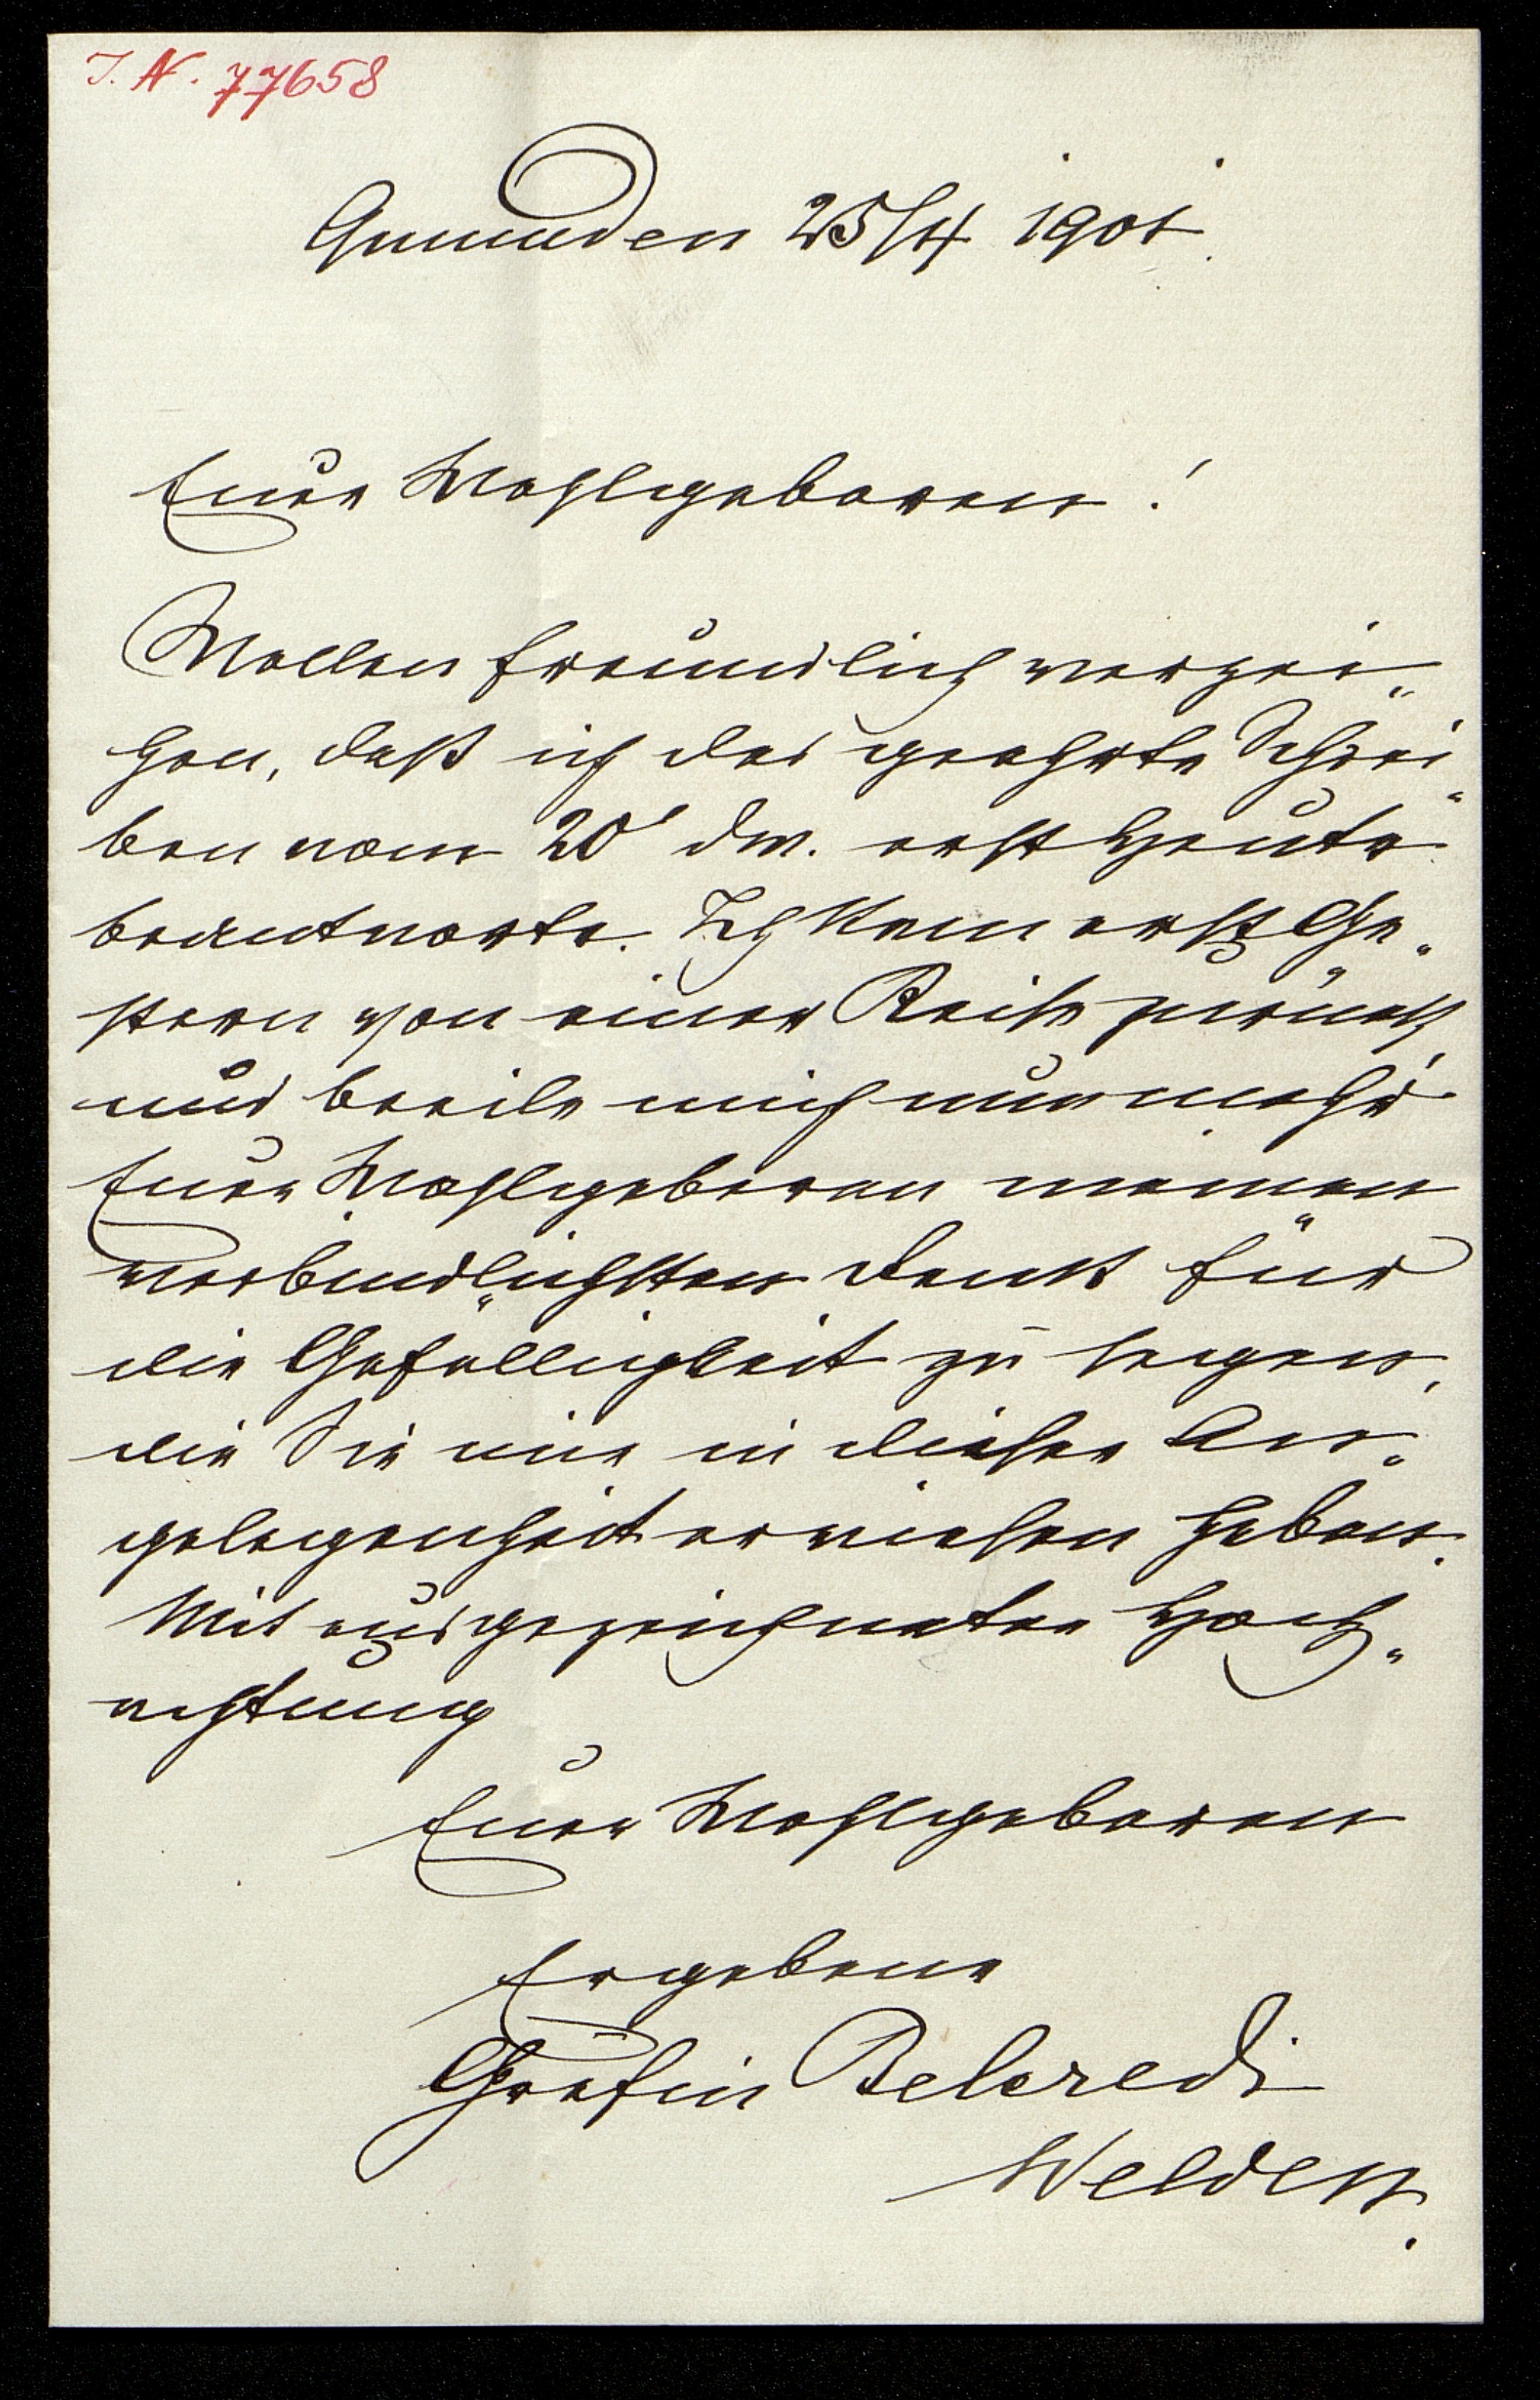 I. N. 77658
Gmunden 25/4 1901.
Euer Wohlgeboren!
Wollen freundlich verzei„
hen, daß ich das geehrte Schrei„
ben vom 20' dM. erst heute
beantworte. Ich kam erst Ge„
stern von einer Reise zurück,
und beeile mich nunmehr
Euer Wohlgeboren meinen
verbindlichsten Dank für
die Gefälligkeit zu sagen,
die Sie mir in dieser An„
gelegenheit erwiesen haben.
Mit ausgezeichneter Hoch„
achtung
Euer Wohlgeboren
Ergebene
Gräfin Belcredi
Welden.